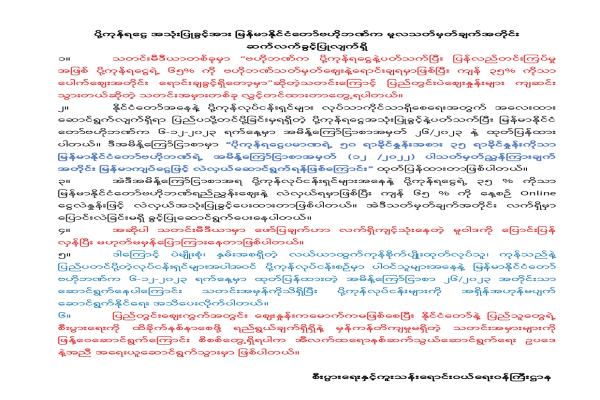 ပို့ကုန်ရငွေ အသုံးပြုခွင့်အား မြန်မာနိုင်ငံတော်ဗဟိုဘဏ်က မူလသတ်မှတ်ချက်အတိုင်း
ဆက်လက်ခွင့်ပြုလျက်ရှိ
၁။ သတင်းမီဒီယာတစ်ခုမှာ "ဗဟိုဘဏ်က ပို့ကုန်ရငွေနဲ့ပတ်သက်ပြီး ပြန်လည်တင်းကြပ်မှု
အဖြစ် ပို့ကုန်ရငွေရဲ့ ၆၅% ကို ဗဟိုဘဏ်သတ်မှတ်ဈေးနဲ့ရောင်းချရမှာဖြစ်ပြီး ကျန် ၃၅% ကိုသာ
ပေါက်ဈေးအတိုင်း ရောင်းချခွင့်ရှိတော့မှာ"ဆိုတဲ့သတင်းကြောင့် ပြည်တွင်းပဲဈေးနှုန်းများ ကျဆင်း
သွားတယ်ဆိုတဲ့ သတင်းအမှားတစ်ခု လွှင့်တင်ထားတာတွေ့ရပါတယ်။
၂။ နိုင်ငံတော်အနေနဲ့ ပို့ကုန်လုပ်ငန်းရှင်များ လုပ်သာကိုင်သာရှိစေရေးအတွက် အလေးထား
ဆောင်ရွက်လျက်ရှိရာ ပြည်ပသို့တင်ပို့ခြင်းမှရရှိတဲ့ ပို့ကုန်ရငွေအသုံးပြုခွင့်နဲ့ပတ်သက်ပြီး မြန်မာနိုင်ငံ
တော်ဗဟိုဘဏ်က ၆-၁၂-၂၀၂၃ ရက်နေ့မှာ အမိန့်ကြော်ငြာစာအမှတ် ၂၆/၂၀၂၃ နဲ့ ထုတ်ပြန်ထား
ပါတယ်။ ဒီအမိန့်ကြော်ငြာစာမှာ "ပို့ကုန်ရငွေပမာဏရဲ့ ၅၀ ရာခိုင်နှုန်းအစား ၃၅ ရာခိုင်နှုန်းကိုသာ
မြန်မာနိုင်ငံတော်ဗဟိုဘဏ်ရဲ့ အမိန့်ကြော်ငြာစာအမှတ် (၁၂ /၂၀၂၂) ပါသတ်မှတ်ညွှန်ကြားချက်
အတိုင်း မြန်မာကျပ်ငွေဖြင့် လဲလှယ်ဆောင်ရွက်ရန်ဖြစ်ကြောင်း" ထုတ်ပြန်ထားတာဖြစ်ပါတယ်။
၃။ အဲဒီအမိန့်ကြော်ငြာစာအရ ပို့ကုန်လုပ်ငန်းရှင်များအနေနဲ့ ပို့ကုန်ရငွေရဲ့ ၃၅ % ကိုသာ
မြန်မာနိုင်ငံတော်ဗဟိုဘဏ်ရည်ညွှန်းဈေးနဲ့ လဲလှယ်ရမှာဖြစ်ပြီး ကျန် ၆၅ % ကို နေ့စဉ် Online
ငွေလဲနှုန်းဖြင့် လဲလှယ်အသုံးပြုခွင့်ပေးထားတာဖြစ်ပါတယ်။ အဲဒီသတ်မှတ်ချက်အတိုင်း လက်ရှိမှာ
ပြောင်းလဲခြင်းမရှိ ခွင့်ပြုဆောင်ရွက်ပေးနေပါတယ်။
၄။ အဆိုပါ သတင်းမီဒီယာမှာ ဖော်ပြချက်ဟာ လက်ရှိကျင့်သုံးနေတဲ့ မူဝါဒကို ပြောင်းပြန်
လှန်ပြီး မဟုတ်မမှန်ပြောကြားနေတာဖြစ်ပါတယ်။
၅။ ဒါကြောင့် ပဲမျိုးစုံ၊ နှမ်းအစရှိတဲ့ လယ်ယာထွက်ကုန်စိုက်ပျိုးထုတ်လုပ်သူ၊ ကုန်သည်နဲ့
ပြည်ပတင်ပို့တဲ့လုပ်ငန်းရှင်များအပါအဝင် ပို့ကုန်လုပ်ငန်းစဉ်မှာ ပါဝင်သူများအနေနဲ့ မြန်မာနိုင်ငံတော်
ဗဟိုဘဏ်က ၆-၁၂-၂၀၂၃ ရက်နေ့မှာ ထုတ်ပြန်ထားတဲ့ အမိန့်ကြော်ငြာစာ ၂၆/၂၀၂၃ အတိုင်းသာ
ဆောင်ရွက်နေပါကြောင်း သတင်းအမှန်ကိုသိရှိပြီး ပို့ကုန်လုပ်ငန်းများကို အရှိန်အဟုန်မပျက်
ဆောင်ရွက်နိုင်ရေး အသိပေးလိုက်ပါတယ်။
၆။ ပြည်တွင်းဈေးကွက်အတွင်း ဈေးနှုန်းကမောက်ကမဖြစ်စေပြီး နိုင်ငံတော်နဲ့ ပြည်သူတွေရဲ့
စီးပွားရေးကို ထိခိုက်နစ်နာစေဖို့ ရည်ရွယ်ချက်ရှိရှိနဲ့ မှန်ကန်တိကျမှုမရှိတဲ့ သတင်းအမှားများကို
ဖြန့်ဝေဆောင်ရွက်ကြောင်း စိစစ်တွေ့ရှိရပါက အီလက်ထရောနစ်ဆက်သွယ်ဆောင်ရွက်ရေး ဥပဒေ
နဲ့အညီ အရေးယူဆောင်ရွက်သွားမှာ ဖြစ်ပါတယ်။
စီးပွားရေးနှင့်ကူးသန်းရောင်းဝယ်ရေးဝန်ကြီးဌာန